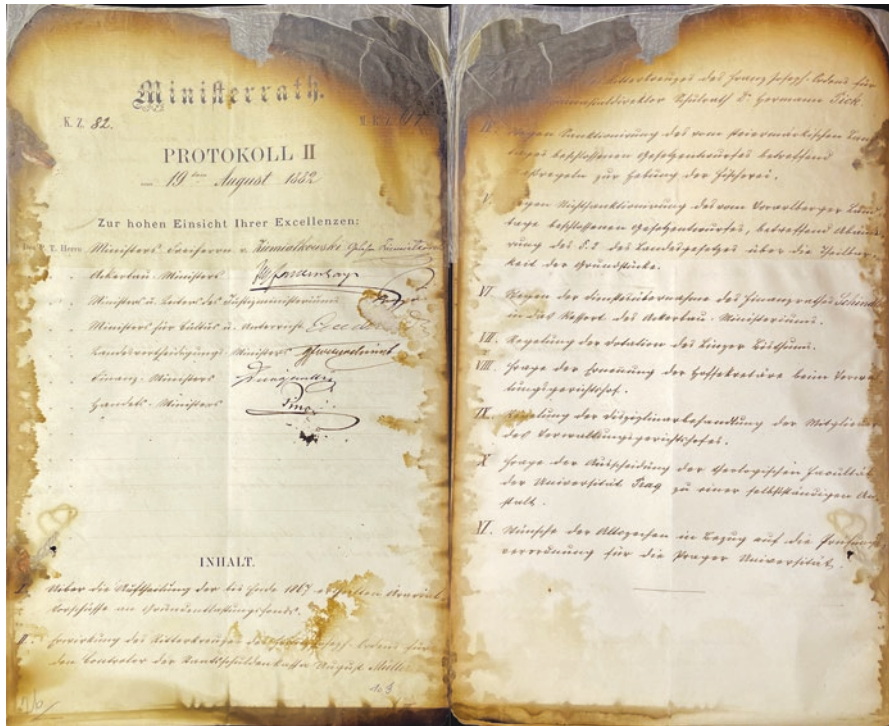 Ministerrath.
K. Z. 82.
M. R. Z.
PROTOKOLL II
vom 19ten August 1882
Zur hohen Einsicht Ihrer Excellenzen:
Des P. T. Herrn Ministers Freiherrn v. Ziemialkowski
" " Ackerbau-Ministers
" " Ministers u. Leiters des Justizministeriums
" " Ministers für Cultus u. Unterricht
" " Landesvertheidigungs-Ministers
" " Finanz-Ministers
" " Handels-Ministers Pino
INHALT.
I. Ueber die Auftheilung der bis Ende 1867 Aerarial-
Vorschüsse an Grundentlastungsfonds.
II. Erwirkung des Ritterkreuzes des Franz Joseph-Ordens für
den Controlor der Staatsschuldenkassa August Müller
Ritterkreuzes des Franz Joseph-Ordens für
Schulrath Dr. Hermann Pick.
IV. Wegen Sanktionirung des vom steiermärkischen Land-
tages beschlossenen Gesetzentwurfes betreffend
Maßregeln zur Hebung der Fischerei.
V. Wegen Nichtsanktionirung des vom Vorarlberger Land-
tage beschlossenen Gesetzentwurfes, betreffend Abände-
rung des §. 2 des Landesgesetzes über die Theilbar-
keit der Grundstücke.
VI. Wegen der Dienstesübernahme des Finanzrathes Schind
in das Ressort des Ackerbau-Ministeriums.
VII. Regelung der Dotation des Linzer Bisthums.
VIII. Frage der Ernennung der Hofsekretäre beim Verwal-
tungsgerichtshof.
IX. Regelung der Disziplinarbehandlung der Mitglieder
des Verwaltungsgerichtshofes.
X. Frage der Ausscheidung der theologischen Facultät
der Universität Prag zu einer selbstständigen An-
stalt.
XI. Wünsche der Altczechen in Bezug auf die Prüfungs-
verordnung für die Prager Universität.